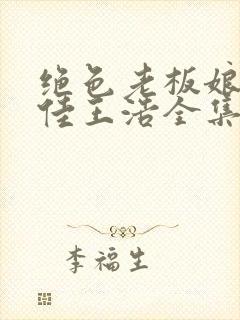 绝色老板娘
佳王浩全集
李福生